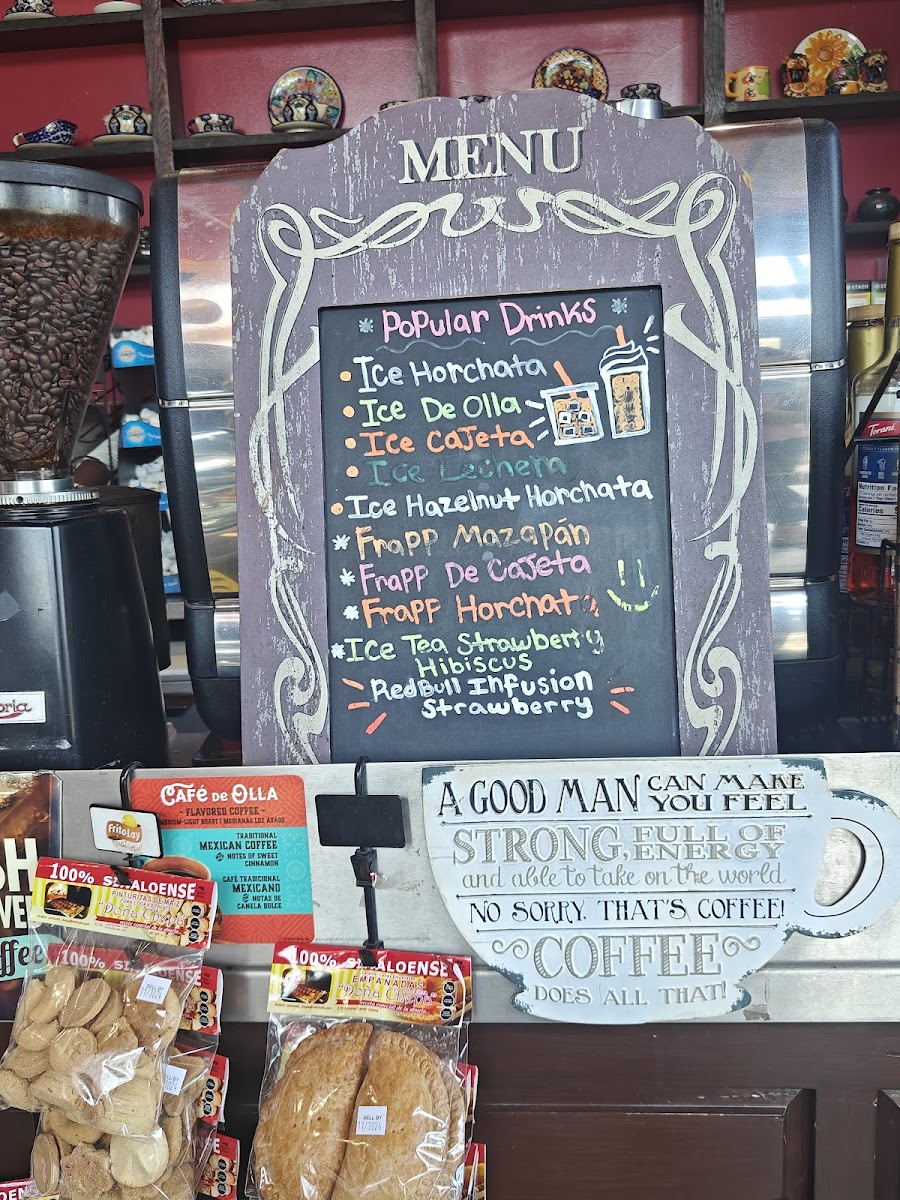 MENU
Popular Drinks
Ice Horchata
Ice De Olla
Ice Cajeta
Ice Lechera
Ice Hazelnut Horchata
Frapp Mazapán
Frapp De Cajeta
Frapp Horchata
Ice Tea Strawberry
Hibiscus
RedBull Infusion
Strawberry
Torani
Nutrition Fa
Calories
oria
CAFÉ DE OLLA
- FLAVORED COFFEE -
MEDIUM-LIGHT ROAST
TRADITIONAL
MEXICAN COFFEE
NOTES OF SWEET
CINNAMON
CAFÉ TRADICIONAL
MEXICANO
NOTAS DE
CANELA DULCE
FritoLay
SH
offee
A GOOD MAN CAN MAKE
YOU FEEL
STRONG, FULL OF
ENERGY
and able to take on the world
NO SORRY, THAT'S COFFEE!
COFFEE
DOES ALL THAT!
100% SINALOENSE
PINTURITAS DE MAIZ
"Doña Chepa"
100% SI OENSE
SELL BY
11/2024
100% SINALOENSE
EMPANADAS
"Doña Chepa"
SELL BY
11/2024